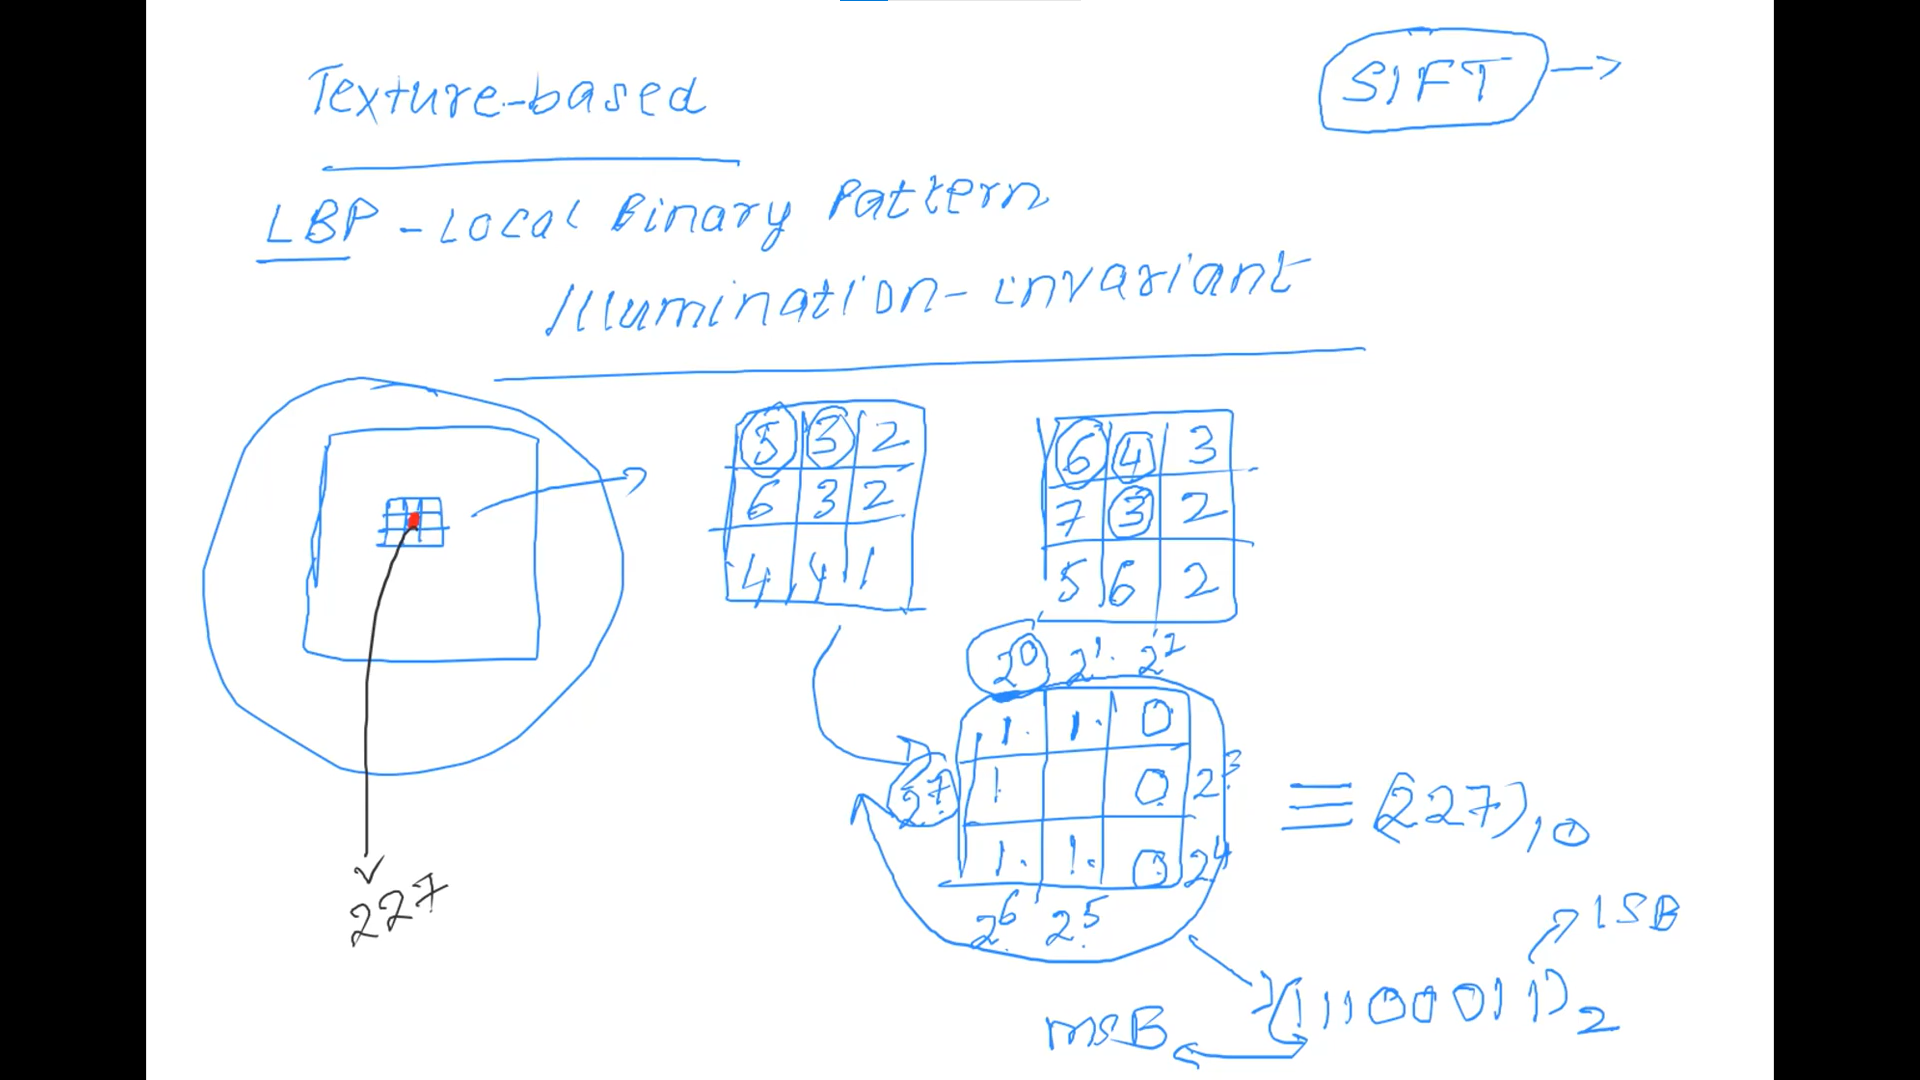 Texture-based
SIFT
LBP - Local Binary Pattern
Illumination-invariant
5 3 2
6 3 2
4 4 1
6 4 3
7 3 2
5 6 2
2^0 2^1 2^2
1 1 0
2^7 1 0 2^3
1 1 0 2^4
2^6 2^5
≡ (227)₁₀
227
LSB
(11100011)₂
MSB